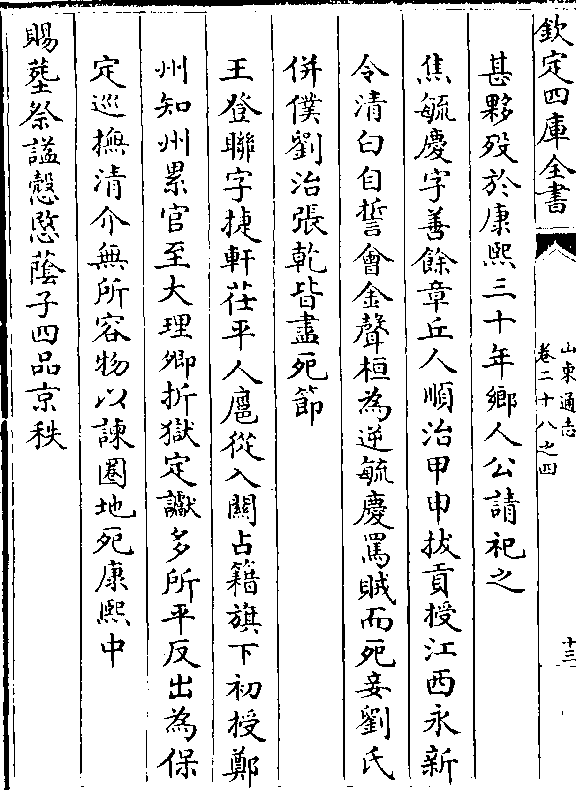 欽定四庫全書
山東通志
卷二十八之四
十三
甚夥歿於康熙三十年鄉人公請祀之
焦毓慶字善餘章丘人順治甲申拔貢授江西永新
令清白自誓會金聲桓為逆毓慶罵賊而死妾劉氏
併僕劉治張乾皆盡死節
王登聯字捷軒茌平人扈從入關占籍旗下初授鄭
州知州累官至大理卿折獄定讞多所平反出為保
定巡撫清介無所容物以諫圈地死康熙中
賜塟祭諡慤愍蔭子四品京秩